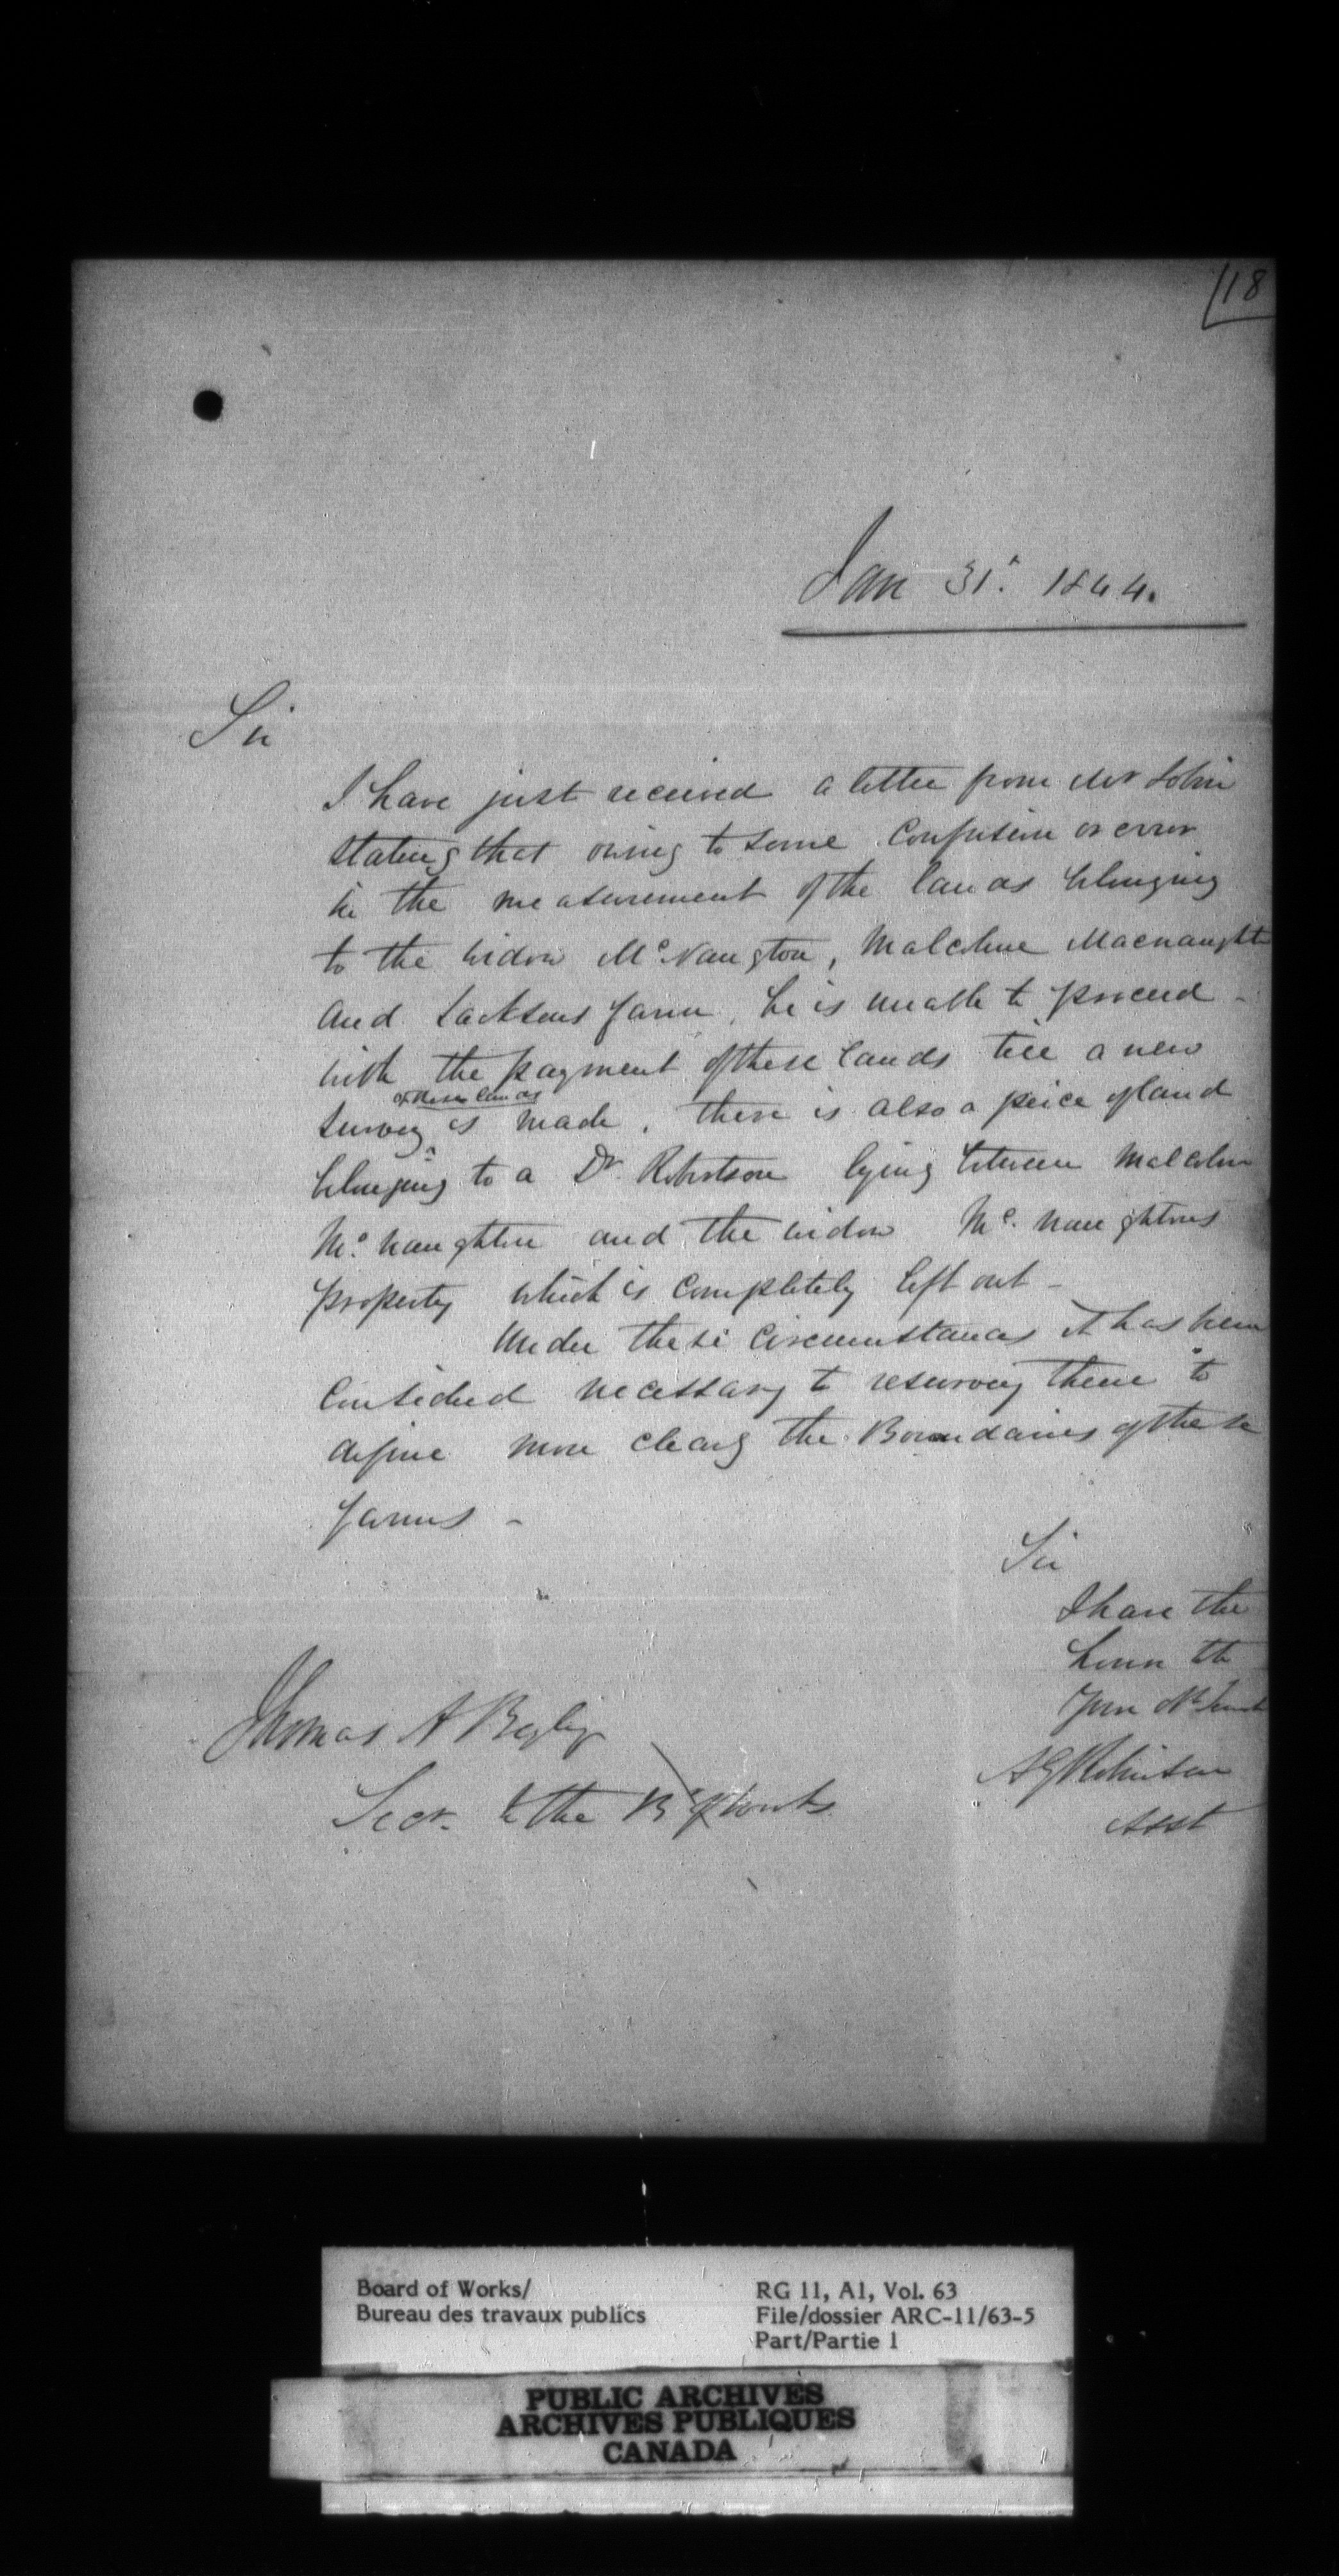 118
Jan 31st 1844.
Sir
I have just received a letter from Mr
stating that owing to some Confusion or error
in the measurement of the lands belonging
to the widow McNaugton, Malcolm Macnaught
and Jacksons farm, he is unable to proceed -
with the payment of these lands till a new
of these lands
survey is made, there is also a peice of land
belonging to a Dr. Robertson lying between Malcolm
Mc. Naughton and the widow Mc. Naughtons
property which is completely left out -
Under these Circumstances it has been
Considered necessary to resurvey them to
define more clearly the Boundaries of these
farms -
Sir
I have the
honor to
A G Robinson
Asst
Thomas A Begly
Secr. to the B of Works
Board of Works/
Bureau des travaux publics
RG 11, A1, Vol. 63
File/dossier ARC-11/63-5
Part/Partie 1
PUBLIC ARCHIVES
ARCHIVES PUBLIQUES
CANADA